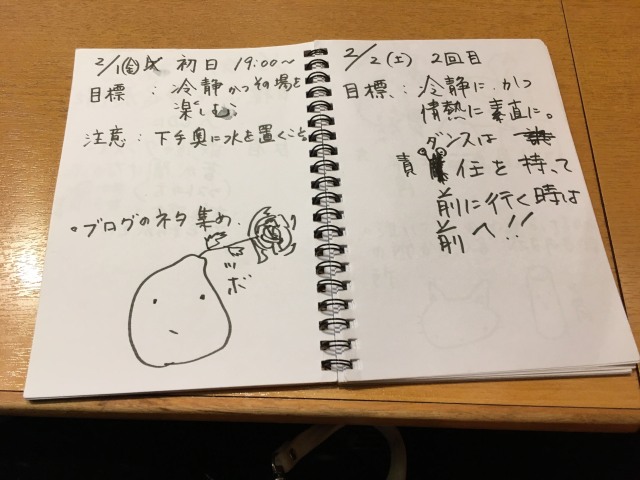 2/1(金) 初日 19:00〜
目標 : 冷静かつその場を
楽しむ
注意 : 下手奥に水を置くこと
・ブログのネタ集め
ツボ
2/2(土) 2回目
目標 : 冷静に、かつ
情熱に素直に。
ダンスは
責任を持って
前に行く時は
前へ!!